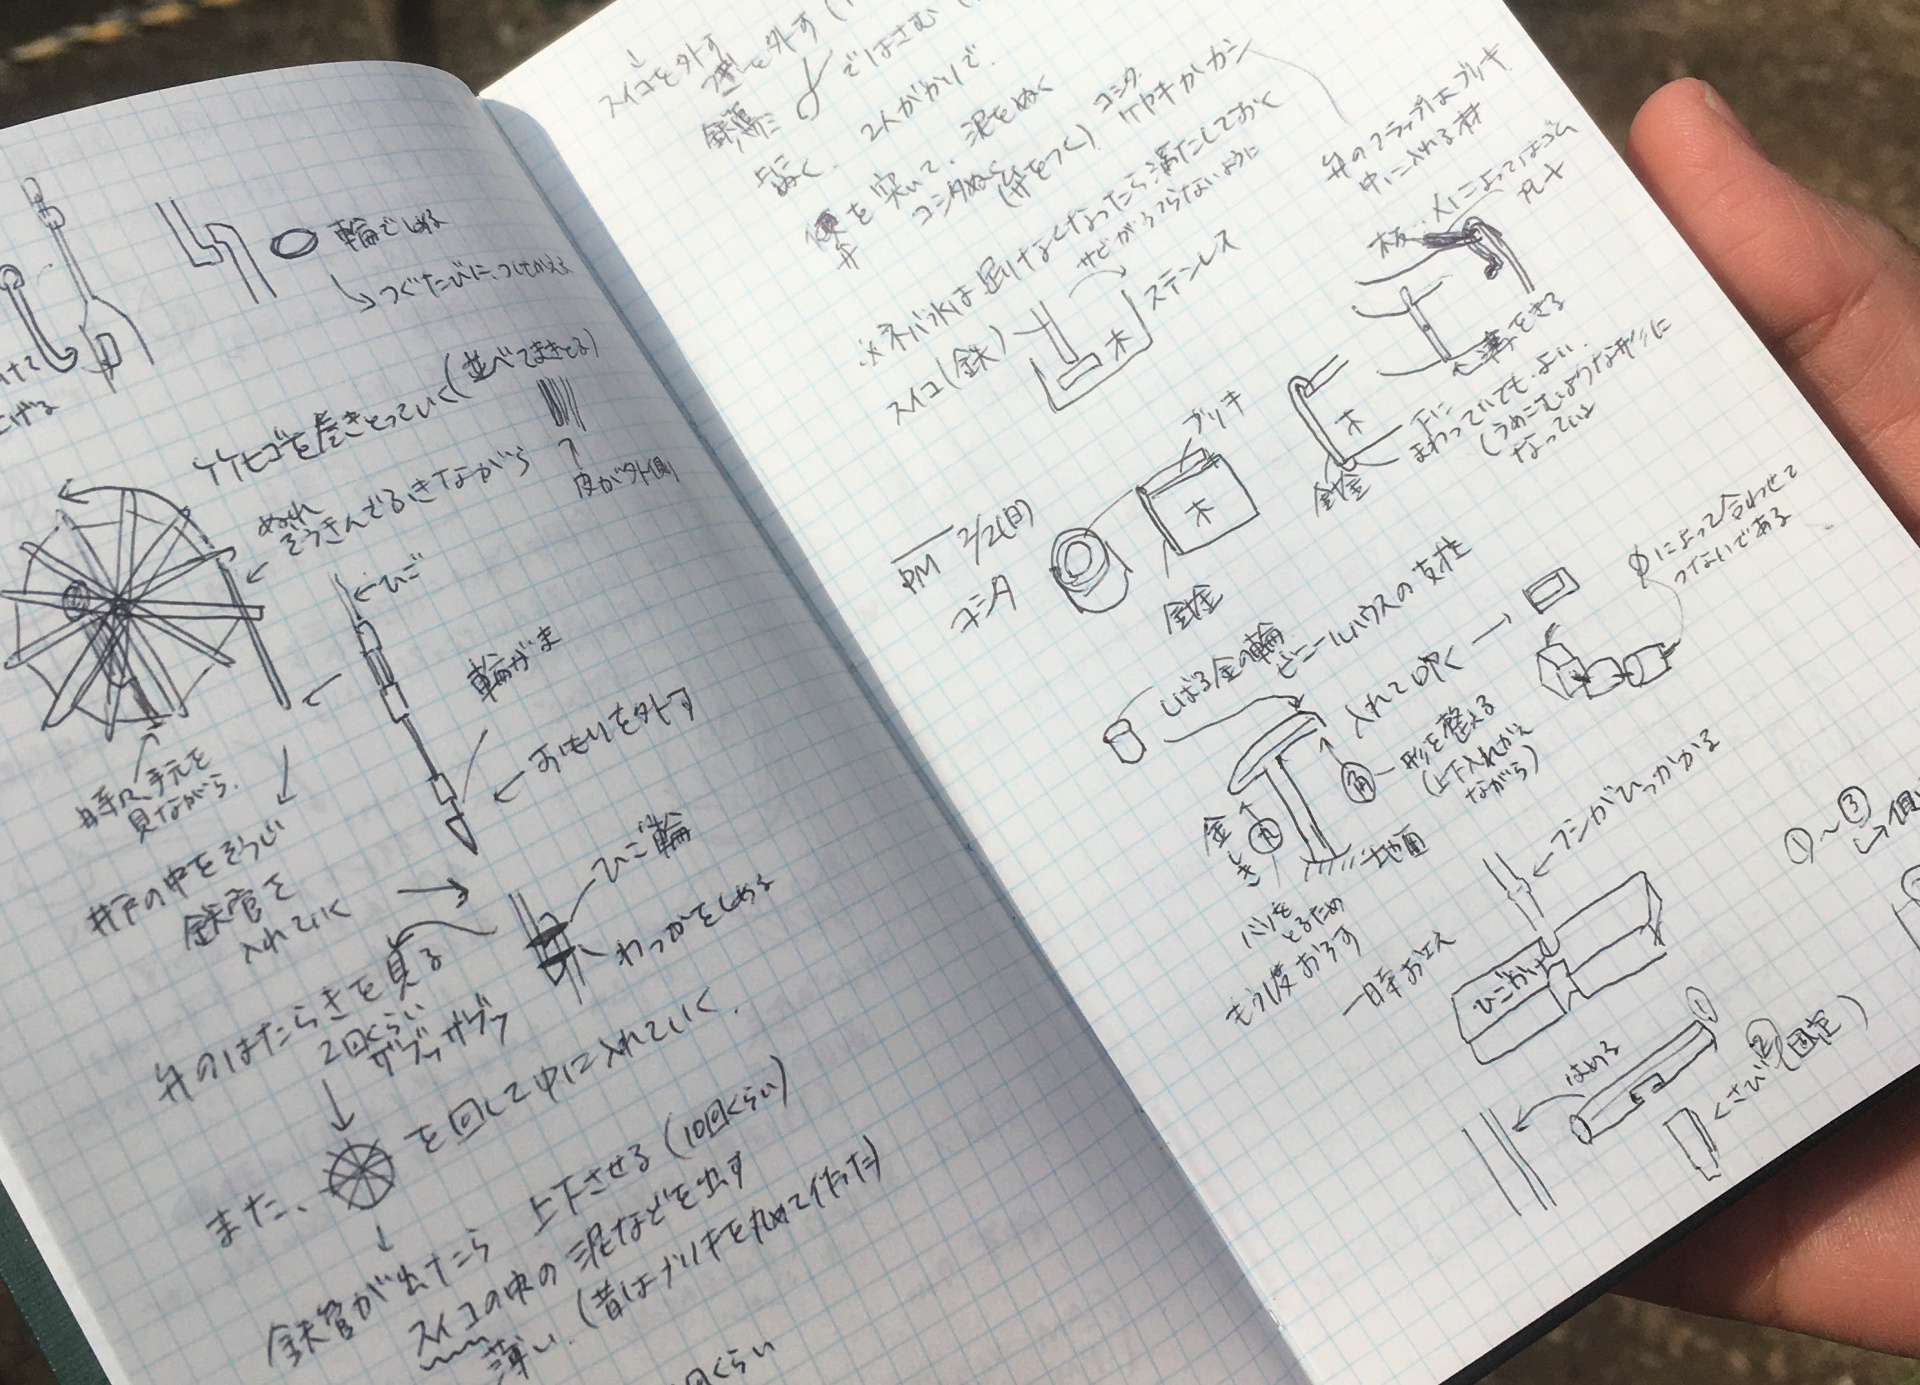 輪でしめる
つぐたびに、つけかえる
竹ヒゴを巻きとっていく(並べてまきとる)
皮が外側
ぬれ
ぞうきんでふきながら
←ひご
輪がま
←おもりを外す
手元を
見ながら.
井戸の中をそうじ
鉄管を
入れていく
ひご輪
わっかをしめる
弁のはたらきを見る
2回くらい
ザブッザブッ
また、
を回して中に入れていく.
鉄管が出たら 上下させる(10回くらい)
スイコの中の泥などを出す
薄い.(昔はブリキを丸めて作った)
回くらい
スイコを外す
を外す
ではさむ
2人がかりで.
を突いて、泥をぬく
コシタ
コシタぬく(弁をつく)
ケヤキかカシ
※ネバ水は足りなくなったら満たしておく
サビがうつらないように
スイコ(鉄)
木
ステンレス
弁のフラップはブリキ
中に入れる材
板.人によってはゴム
←溝をきる
木
下に
まわっていてもよい.
(うめこむような形に
なっている
針金
PM 2/2(日)
コシタ
ブリキ
木
針金
しばる金の輪
ビニールハウスの支柱
入れて叩く
φによって合わせて
つないである
角
形を整える
(上下入れかえ
ながら)
金しき
丸
地面
バリを
とるため
もう1度おろす
一時お
フシがひっかかる
ひごかけ
①〜③
はめる
①
くさび②(固定)